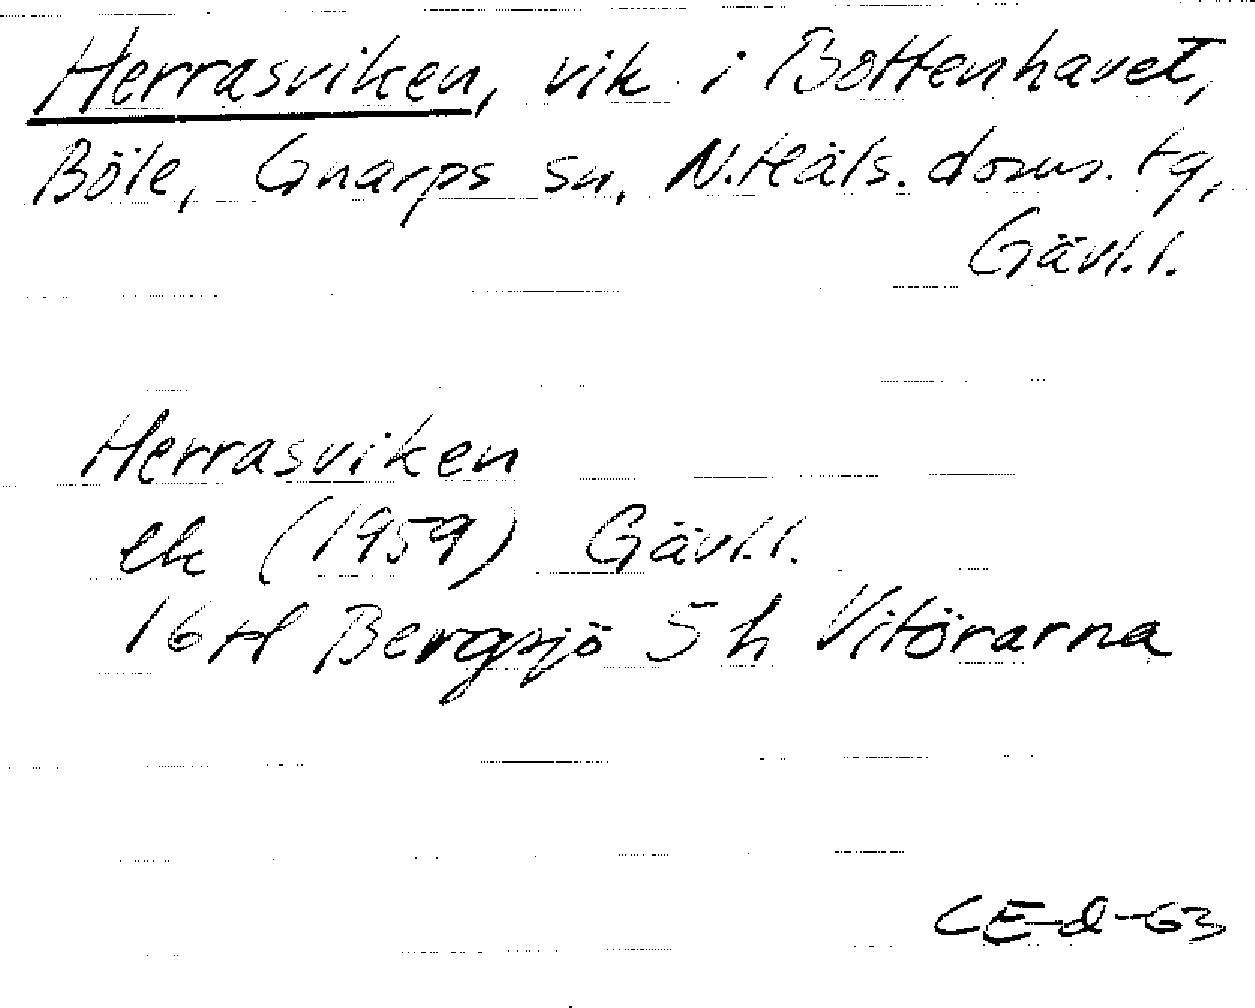 Herrasviken, vik i Bottenhavet,
Böle, Gnarps sn, N. Häls. doms. tg,
Gävl.l.
Herrasviken
ek (1959) Gävl.l.
16H Bergsjö 5h Vitörarna
CE-d-63